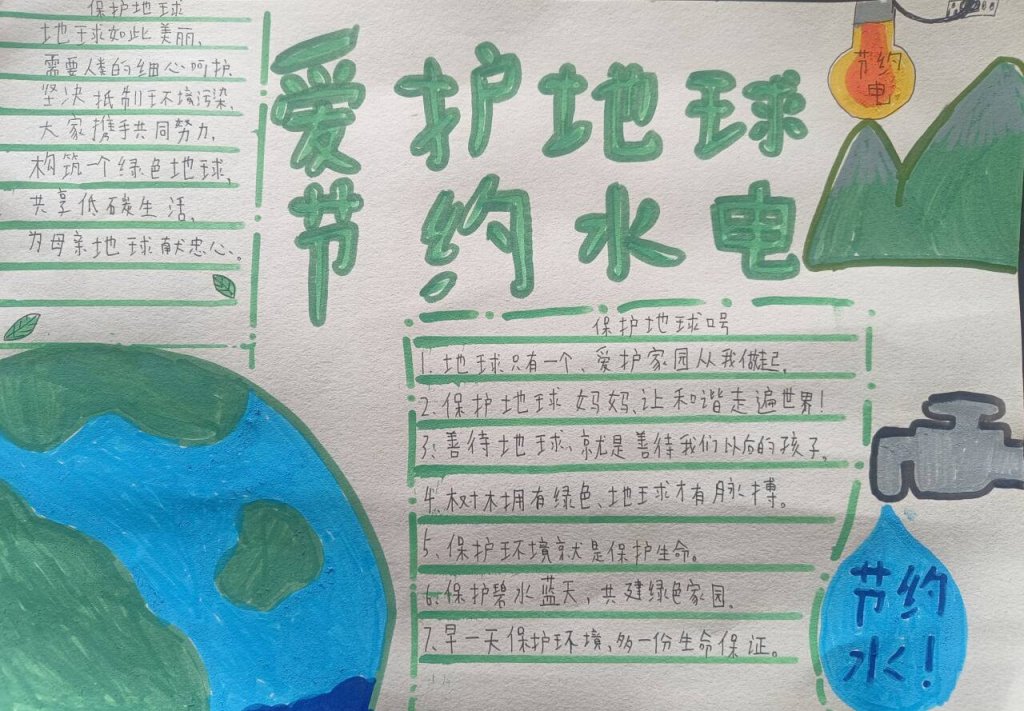 保护地球
地球如此美丽,
需要人类的细心呵护.
坚决抵制环境污染,
大家携手共同努力,
构筑一个绿色地球,
共享低碳生活,
为母亲地球献忠心。
爱护地球
节约水电
节约
电
保护地球口号
1、地球只有一个、爱护家园从我做起.
2、保护地球妈妈、让和谐走遍世界!
3、善待地球、就是善待我们以后的孩子.
4、树木拥有绿色、地球才有脉搏。
5、保护环境就是保护生命。
6、保护碧水蓝天,共建绿色家园.
7、早一天保护环境、多一份生命保证。
节约
水!